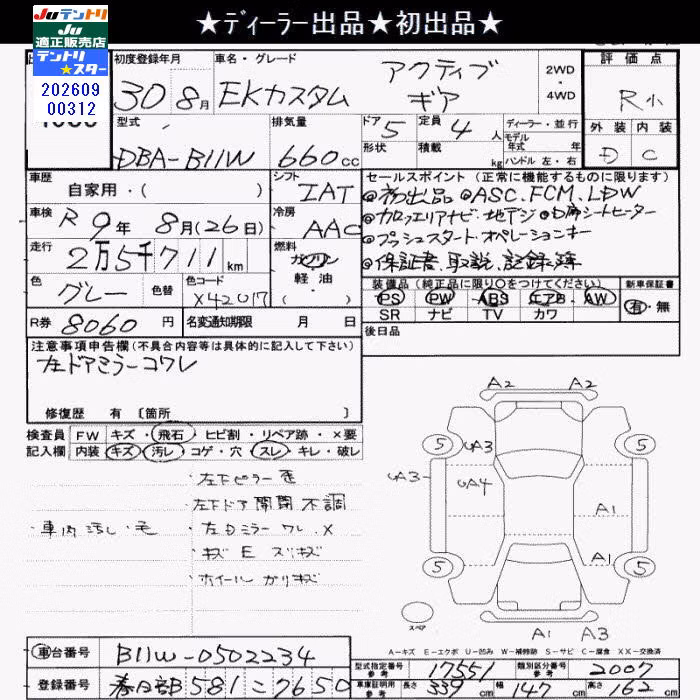 ★ディーラー出品★初出品★
JUテントリ
JU
適正販売店
テントリ
★スター
202609
00312
初度登録年月
車名・グレード
評価点
30 8月
EKカスタム
アクティブ
ギア
2WD
・
4WD
R小
外装 内装
D C
型式
DBA-B11W
排気量
660cc
ドア 5
定員 4人
形状
積載 kg
ディーラー・並行
モデル
年式 年
ハンドル 左・右
車歴
自家用・( )
シフト
IAT
車検
R9年 8月(26日)
冷房
AAC
走行
2万5千711km
燃料
ガソリン
軽油
・( )
色
グレー
色替
色コード
X42017
R券 8060円
名変通知期限 月 日
セールスポイント(正常に機能するものに限ります)
◎初出品◎ASC.FCM.LDW
◎カロッツェリアナビ・地デジ◎D席シートヒーター
◎プッシュスタート・オペレーションキー
◎保証書、取説、記録簿
装備品(純正品に限り○をつけてください)
PS PW ABS エアB AW
SR ナビ TV カワ
新車保証書
有・無
後日品
注意事項申告欄(不具合内容等は具体的に記入して下さい)
左ドアミラーコワレ
修復歴 有 〔箇所 〕
検査員
記入欄
FW キズ・飛石・ヒビ割・リペア跡・×要
内装 キズ・汚レ・コゲ・穴・スレ・キレ・破レ
・左下ピラー歪
左下ドア開閉不調
・車内汚し・毛
・左Dミラーワレ.X
・キズEスリキズ
・ホイールガリキズ
A2 A2
5 5
UA3
UA3
UA4
A1
A1
5 5
スペア
A1 A3
A-キズ E-エクボ U-凹み W-補修跡 S-サビ C-腐食 XX-交換済
車台番号
B11W-0502234
登録番号
春日部581こ7650
型式指定番号
参考
17551
類別区分番号
参考
2007
車庫証明用
参考
長さ 339cm
幅 147cm
高さ 162cm